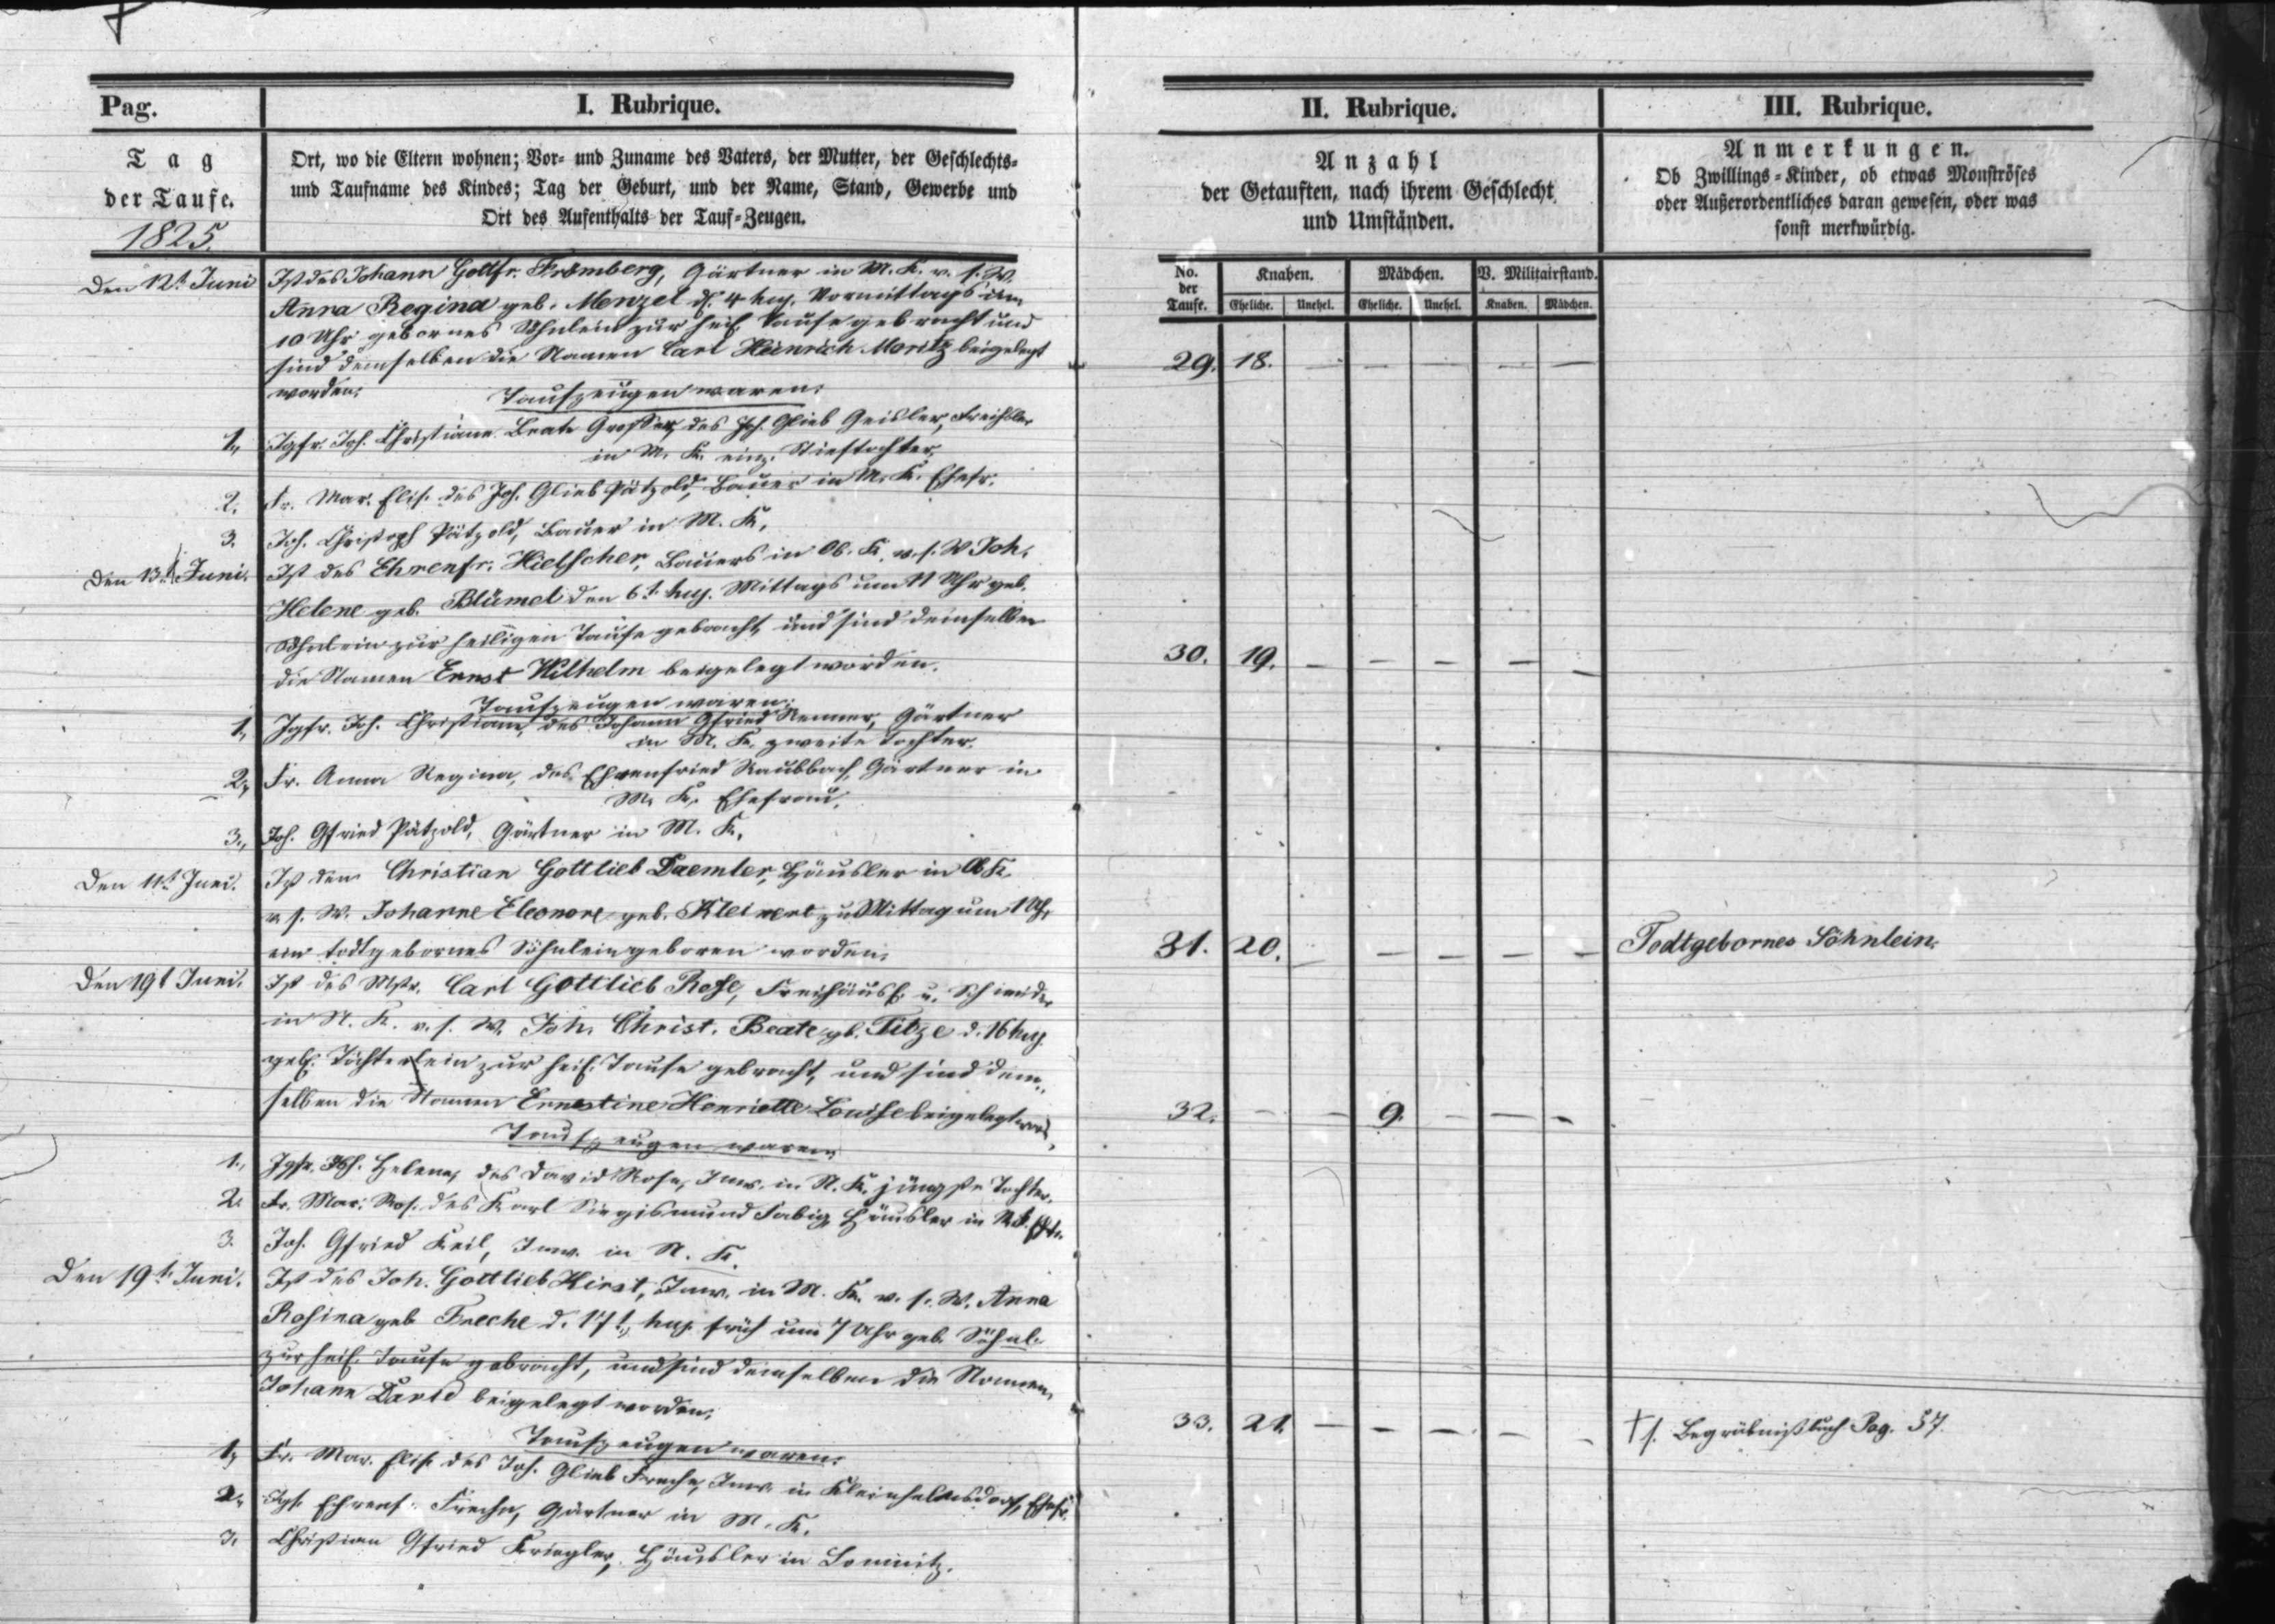 Pag.
I. Rubrique.
Tag
der Taufe.
1825.
Ort, wo die Eltern wohnen; Vor- und Zuname des Vaters, der Mutter, der Geschlechts-
und Taufname des Kindes; Tag der Geburt, und der Name, Stand, Gewerbe und
Ort des Aufenthalts der Tauf-Zeugen.
den 12t. Juni
Ist des Johann Gottfr. Fromberg, Gärtner in M. K. v. s. W.
Anna Regina geb. Menzel d. 4 huj. Vormittags um
10 Uhr gebornes Söhnlein zur heil. Taufe gebracht und
sind demselben die Namen Carl Heinrich Moritz beigelegt
worden.
Taufzeugen waren:
1., Jgfr. Joh. Christiane Beate Großer, des Joh. Glieb Geisler, Freihslr
in M. K. einz. Stieftochter.
2. Fr. Mar. Elis. des Joh. Glieb Pätzold, Bauer in M. K. Ehefr.
3. Joh. Christoph Pätzold, Bauer in M. K.
den 13t. Juni.
Ist des Ehrenfr. Hielscher, Bauers in Ob. K. v. s. W Joh.
Helene geb. Blümel den 6t. huj. Mittags um 11 Uhr geb.
Söhnlein zur heiligen Taufe gebracht, und sind demselben
die Namen Ernst Wilhelm beigelegt worden.
Taufzeugen waren:
1., Jgfr. Joh. Christiane, des Johann Gfried Renner, Gärtner
in M. K. zweite Tochter.
2., Fr. Anna Regina, des Ehrenfried Raubbach, Gärtner in
M. K. Ehefrau.
3., Joh. Gfried Pätzold, Gärtner in M. K.
den 11t. Juni.
Ist dem Christian Gottlieb Daemler, Häusler in Ob K.
v. s. W. Johanne Eleonore geb. Kleinert zu Mittag um 1 Uhr
ein todtgebornes Söhnlein geboren worden.
den 19t Juni.
Ist des Mstr. Carl Gottlieb Rose, Freihäusl. u. Schneider
in N. K. v. s. W. Joh. Christ. Beate gb. Titze d. 16 huj
geb. Töchterlein zur heil. Taufe gebracht, und sind dem-
selben die Namen Ernestine Henriette Louise beigelegt word.
Taufzeugen waren:
1., Jgfr. Joh. Helena, des David Rose, Inw. in N. K. jüngste Tochter.
2. Fr. Mar. Ros. des Karl Siegismund Fabig, Häusler in N. K. Ehefr.
3. Joh. Gfried Keil, Inw. in N. K.
den 19t. Juni.
Ist des Joh. Gottlieb Hirst, Inw. in M. K. v. s. W. Anna
Rosina geb Freche d. 17t., huj. früh um 7 Uhr geb. Söhnl.
zur heil. Taufe gebracht, und sind demselben die Namen
Johann David beigelegt worden.
Taufzeugen waren:
1., Fr. Mar. Elis. des Joh. Glieb Freche, Inw. in Kleinhelmsdorf, Ehefr.
2., Ehrenf. Freche, Gärtner in M. K.
3. Christian Gfried Kriegler, Häusler in Lomnitz.
II. Rubrique.
Anzahl
der Getauften, nach ihrem Geschlecht
und Umständen.
No. der Taufe. Knaben. Mädchen. V. Militairstand.
Eheliche. Unehel. Eheliche. Unehel. Knaben. Mädchen.
29. 18. — — — — —
30. 19. — — — — —
31. 20. — — — — —
32. — — 9. — — —
33. 21 — — — — —
III. Rubrique.
Anmerkungen.
Ob Zwillings-Kinder, ob etwas Monströses
oder Außerordentliches daran gewesen, oder was
sonst merkwürdig.
Todtgebornes Söhnlein.
† s. Begräbnißbuch Pag. 57.